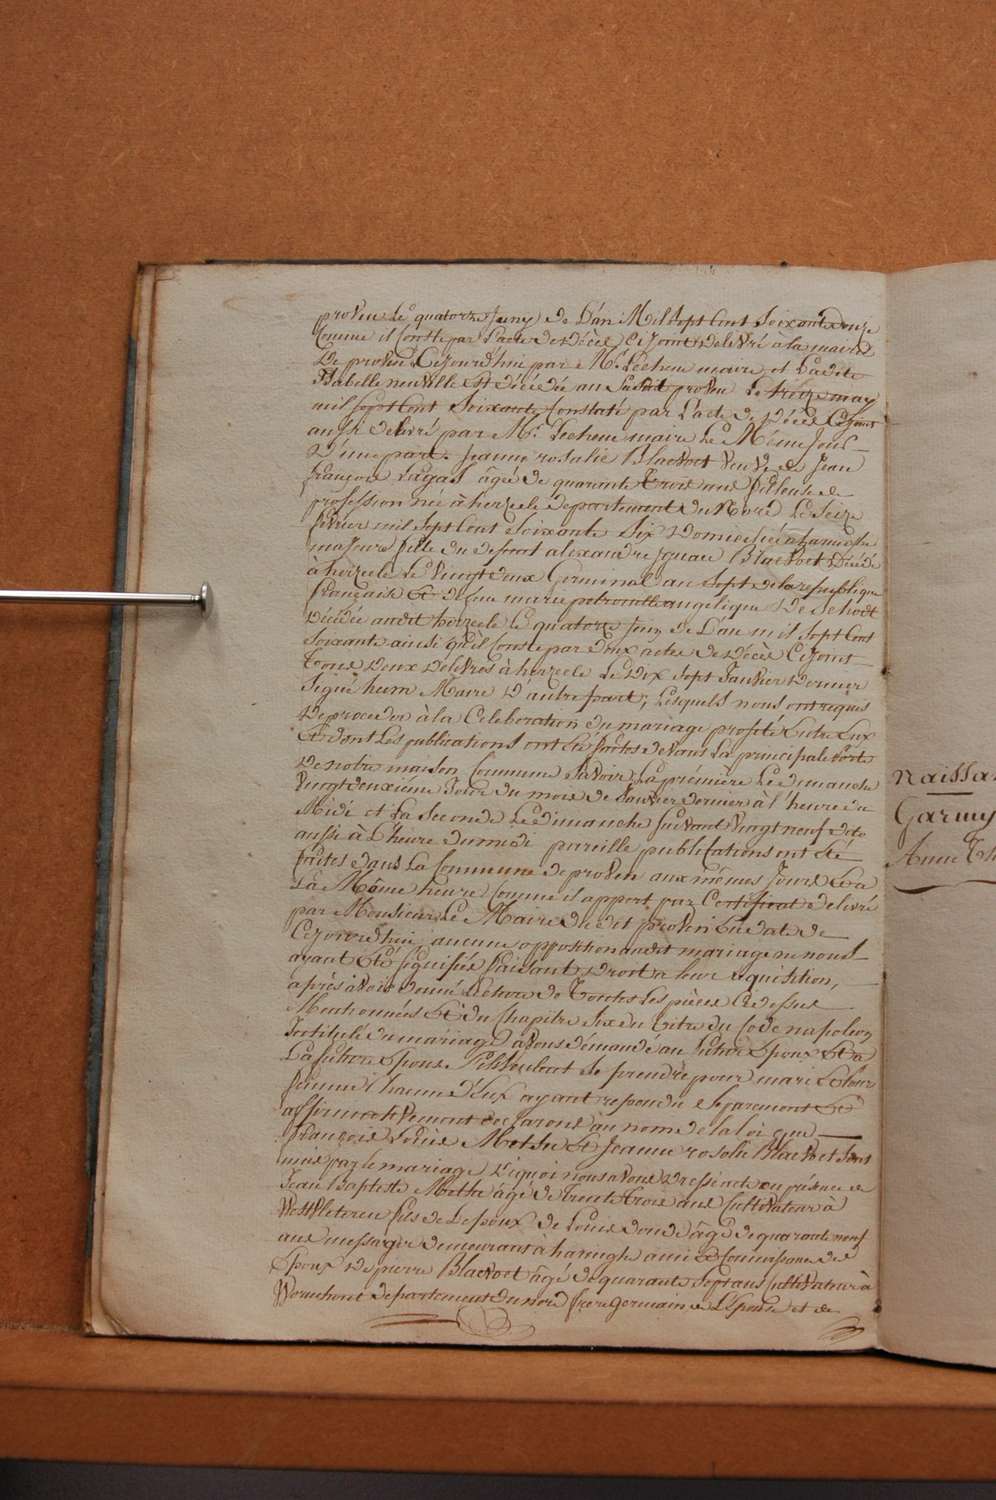 proven le quatorze Juny de L'an Mil sept Cent Soixante Douze
Comme il Conste par L'acte de Décès Cijoint Delivré à la mairie
De proven Cejourd'hui par Mr. Lecheue maire, et Ladite
Isabelle neuville Est décédée au Susdit proven Le treize may
mil sept Cent Soixante Constaté par L'acte de Décès Cijoint
aussi delivré par Mr. Lecheue maire Le Même Jour
D'une part. Jeanne rosalie Blaevoet veuve de Jean
françois Lagas âgée de quarante Trois ans fileuse de
profession née à herzeele departement du Nord Le Seize
fevrier mil sept Cent Soixante Six Domiciliée à
majeure fille du defunt alexandre Ignace Blaevoet Décédé
à herzeele Le Vingt deux Germinal an Sept de la republique
française Et de feue marie petronille angelique De Schodt
Décédée audit herzeele le quatorze Juin de L'an mil sept Cent
Soixante ainsi qu'il Conste par deux actes de Décès Cijoint
Tous Deux Delivrés à herzeele Le Dix Sept Janvier Dernier
Signé heem Maire D'autre part; Lesquels nous ont requis
De proceder à la Celebration du mariage projeté Entre Eux
Et dont Les publications ont été faites devant La principale Porte
De notre maison Commune Savoir La première Le dimanche
Vingt deuxième Jour du mois de Janvier dernier à l'heure du
Midi et La Seconde Le dimanche Suivant Vingt neuf dito
aussi à L'heure du midi pareille publications ont été
faites dans La Commune de proven aux mêmes Jours Et a
La Même heure Comme il apport par Certificat delivré
par Monsieur Le Maire du dit proven En date de
Cejourd'hui, aucune opposition audit mariage ne nous
ayant Eté signifiée faisant Droit a leur requisition,
après avoir donné Lecture de Toutes Les pièces Cidessus
Mentionnées Et du Chapitre Six du titre du Code napoleon
Intitulé du mariage avons demandé au futur Epoux Et a
La future Epouse s'ils veulent se prendre pour mari Et pour
femme Chacun d'Eux ayant repondu separement Et
affirmativement declarons au nom de la loi que
François Louis Methu Et Jeanne rosalie Blaevoet Sont
unis par le mariage De quoi nous avons Dressé acte en presence de
Jean Baptiste Methu âgé de Trente trois ans Cultivateur à
Westvleteren fils de L'epoux de Louis donde âgé de quarante neuf
ans messager demeurant à haringhe ami Et Connaissance de
Epoux De pierre Blaevoet âgé de quarante Sept ans Cultivateur à
Wormhout departement du nord frère germain de L'Epouse et de
Naissa
Garny
Anne